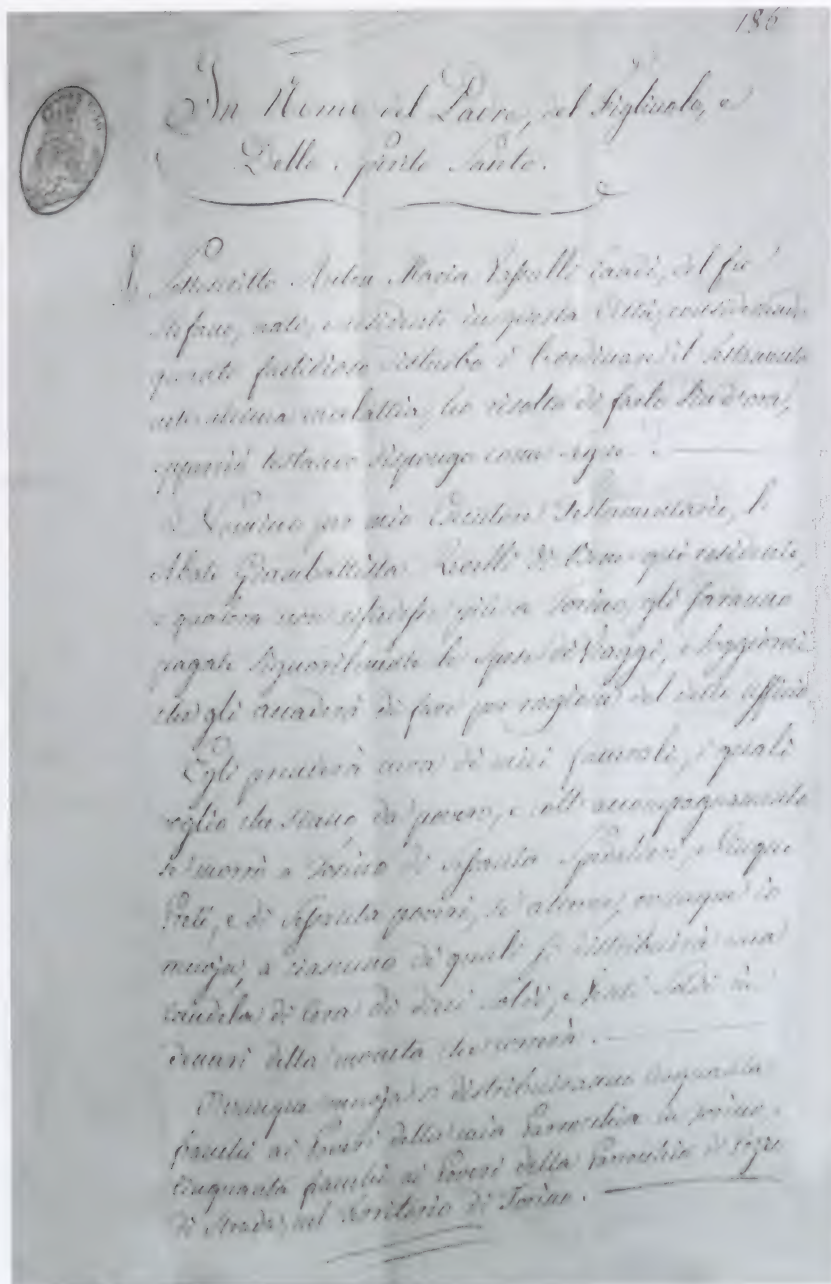 186
In Nome del Padre, del Figliuolo, e
Dello Spirito Santo.
Io Sottoscritto Anton Maria Vassalli Eandi, del fu
Stefano, nato, e residente in questa Città, considerando
quanto fastidioso disturbo è l'ordinare il testamento
nell' ultima malattia, ho risolto di farlo
testando dispongo come segue. —
Nomino per mio Esecutore Testamentario, l'
Abate Giambattista di qui residente,
e qualora non risiedesse più a Torino, gli saranno
pagate le spese di Viaggi, e soggiorni
che gli accaderà di fare per ragione del detto uffizio
Egli prenderà cura de' miei funerali, i quali
voglio che siano da povero, e coll' accompagnamento
se morrò a Torino di sessanta e Cinque
Preti, e di sessanta poveri, se altrove, ovunque io
muoja, a ciascuno de' quali si distribuirà una
Candela di Cera di dieci soldi, e Venti Soldi in
denari della moneta che correrà. —
Ovunque muoja si distribuiranno cinquanta
franchi ai Poveri della mia Parrocchia in Torino, e
Cinquanta franchi ai Poveri della Parrocchia di
di Strada, nel territorio di Torino. —